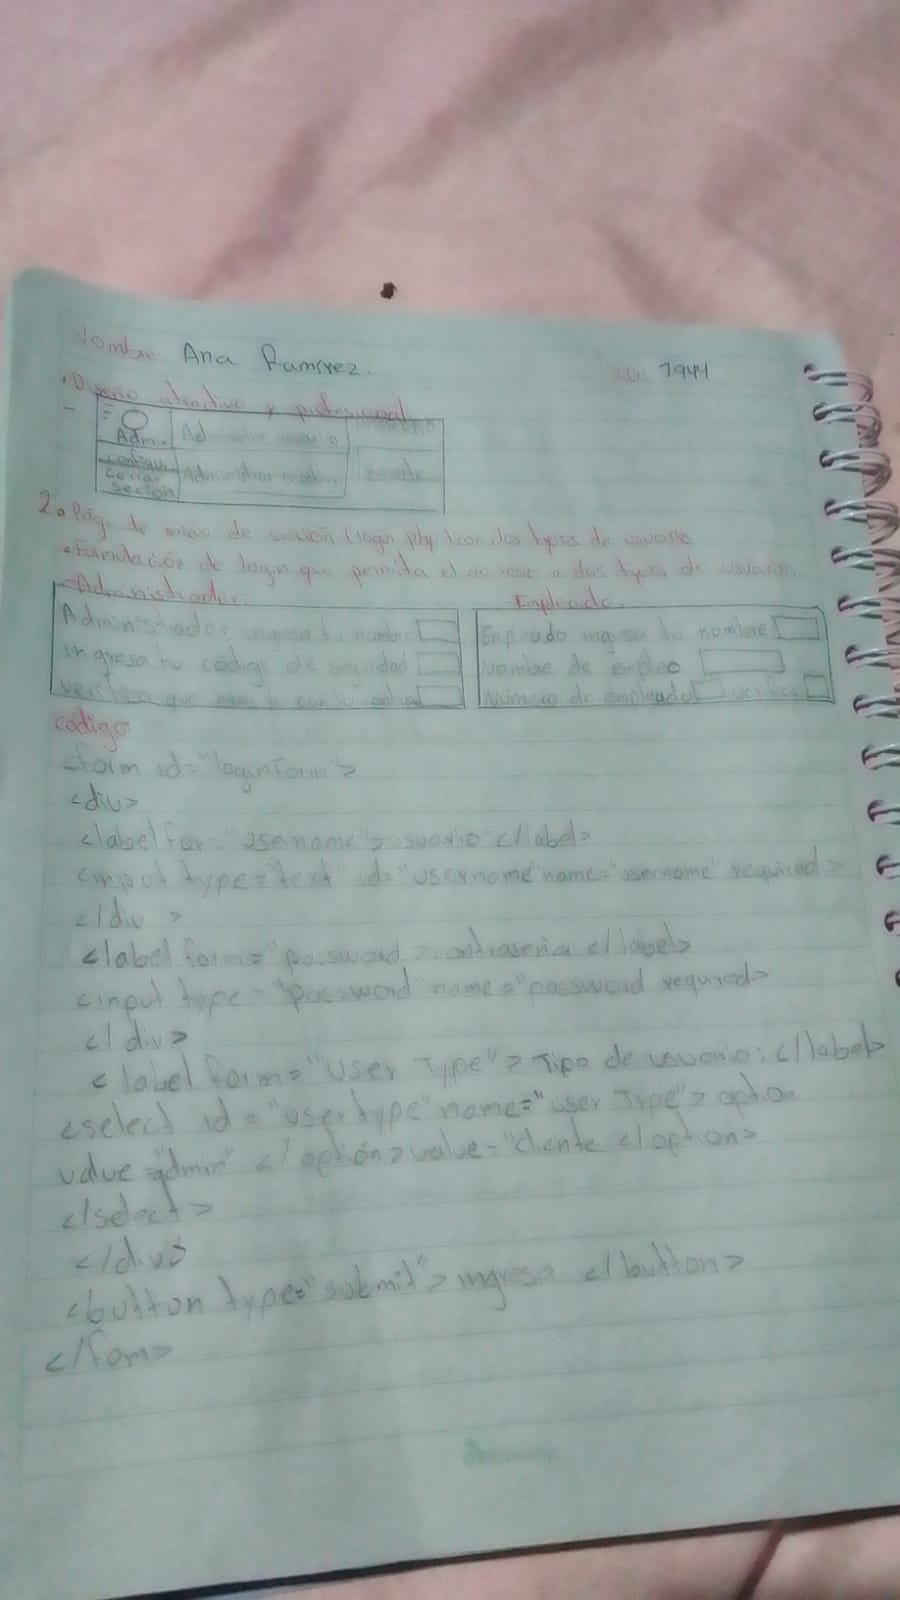 Nombre: Ana Ramírez. ID: 1944
• Diseño atractivo y profesional
Adm. Administrar usuario
Configu.
Cerrar Administrar
Seción
2. Pág. de inicio de sesión (login php) con dos tipos de usuario
• Formulación de login que permita el acceso a dos tipos de usuario:
- Administrador: - Empleado:
Administrador ingresa tu nombre
ingresa tu código de seguridad
verifica que eres tu con tu
Empleado ingresa tu nombre
Nombre de empleo
Número de empleado verifica
código
<form id="loginForm">
<div>
<label for="username">usuario:</label>
<input type="text" id="username" name="username" required>
</div>
<label form="password>contraseña </label>
<input type="password" name="password required>
</div>
<label form="User Type">Tipo de usuario:</label>
<select id="usertype" name="user Type"> option
value="admin" </option>value="cliente </option>
</select>
</div>
<button type="submit">ingresa </button>
</fom>